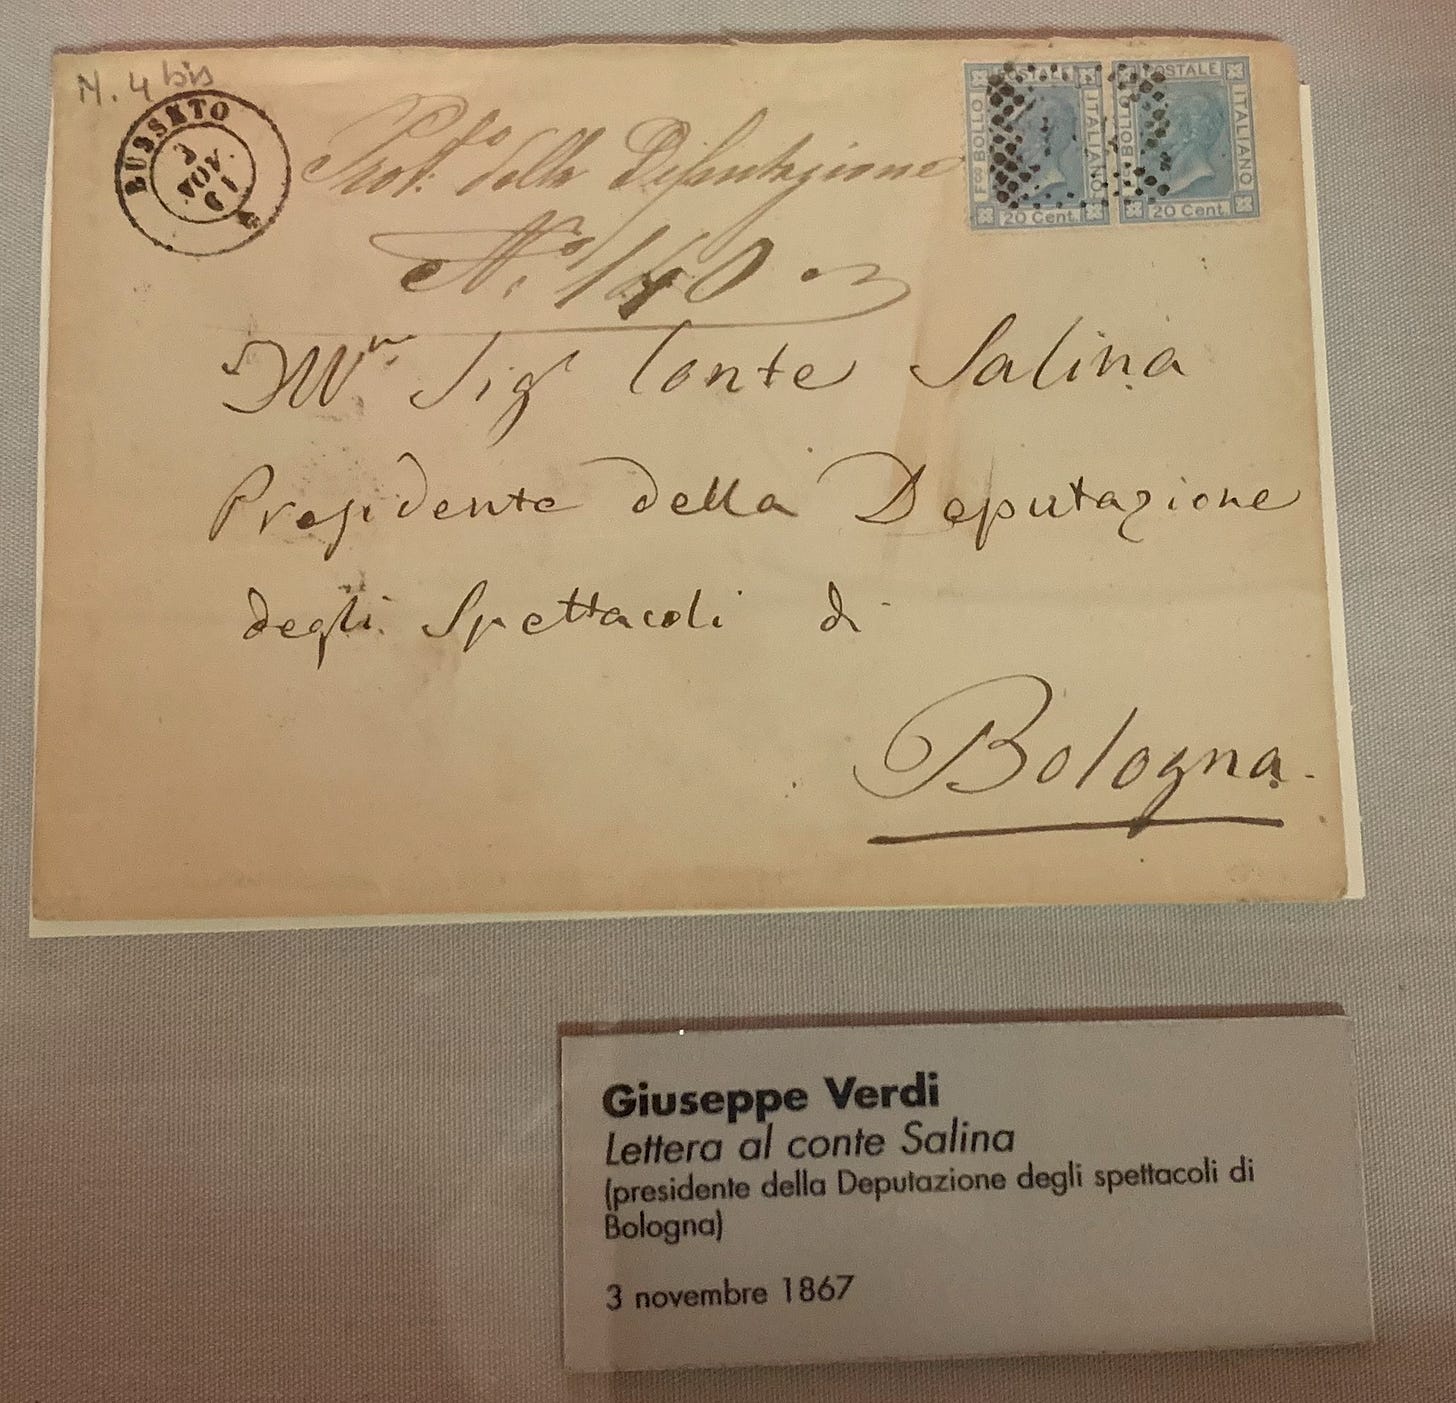 N. 4 bis
BUSSETO
NOV
Prot.lo della Deputazione
N.o 140
POSTALE
F.CO BOLLO
ITALIANO
20 Cent.
POSTALE
BOLLO
ITALIANO
20 Cent.
Sig Conte Salina
Presidente della Deputazione
degli Spettacoli di
Bologna.
Giuseppe Verdi
Lettera al conte Salina
(presidente della Deputazione degli spettacoli di
Bologna)
3 novembre 1867